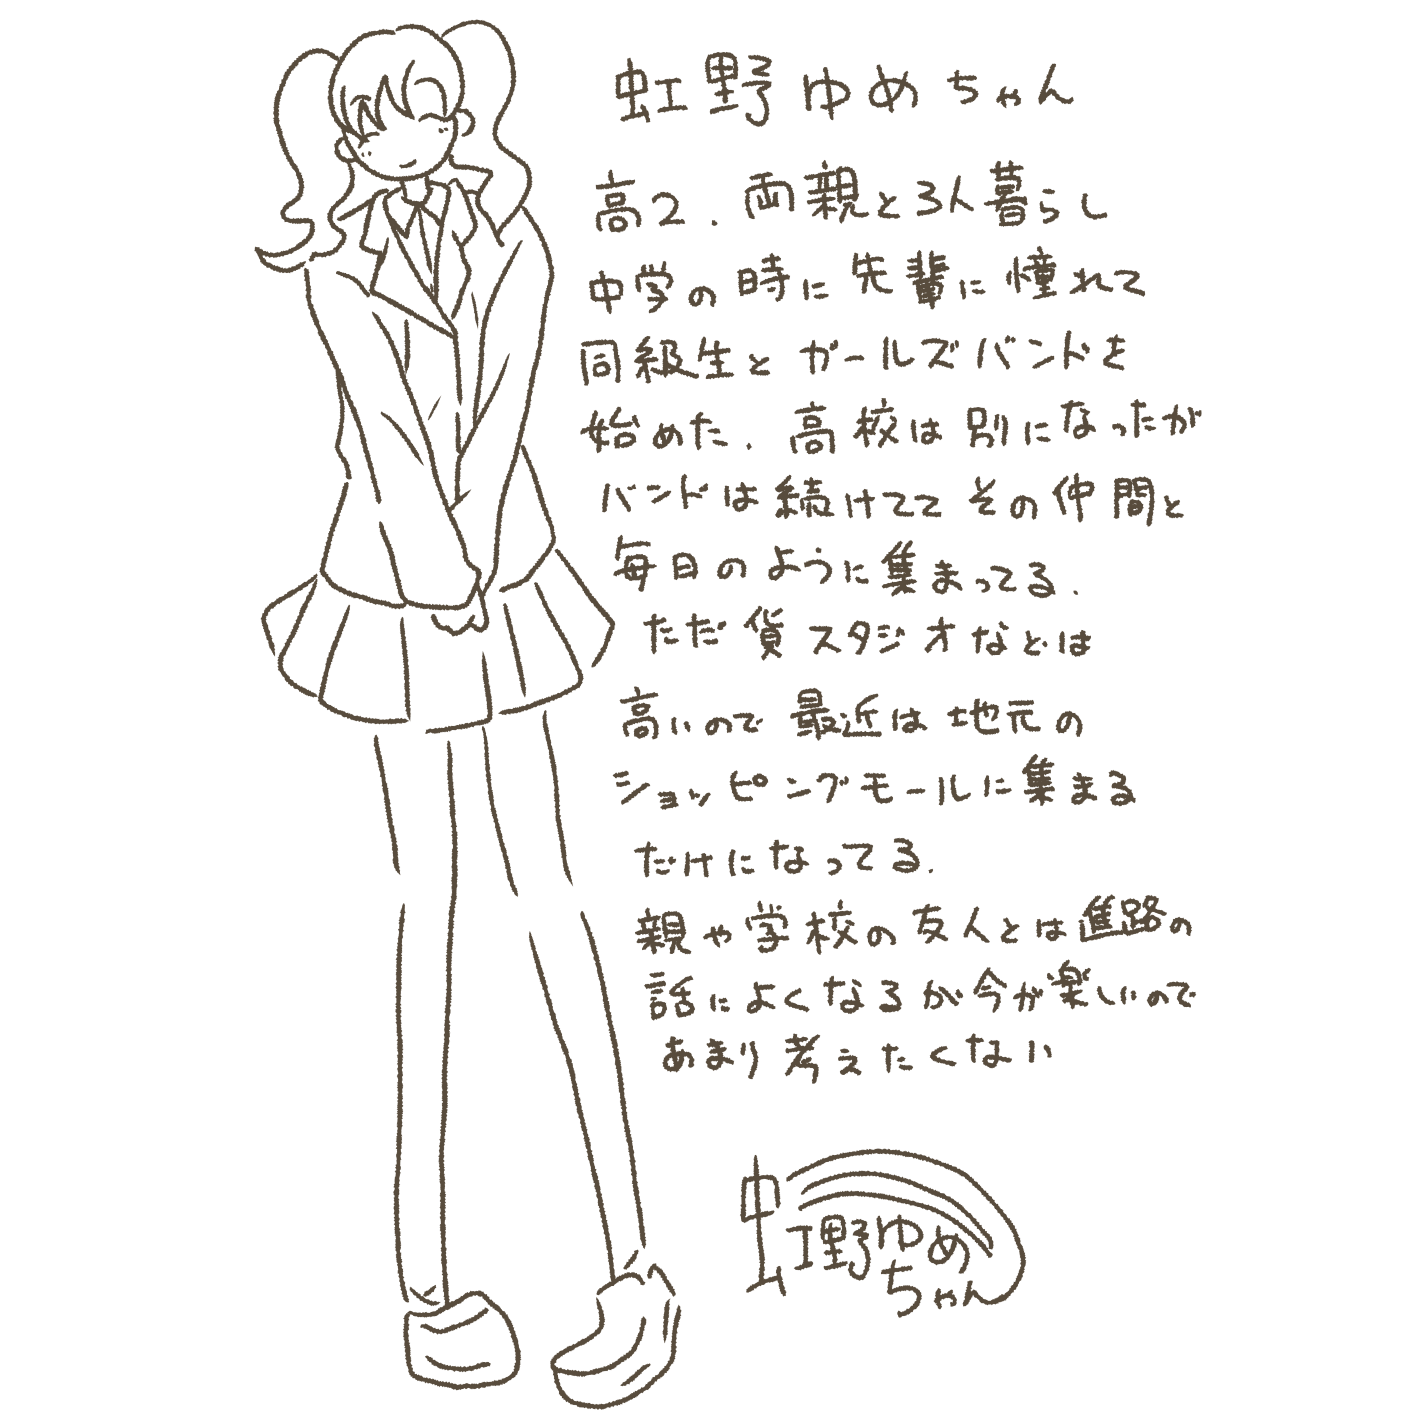 虹野ゆめちゃん
高2.両親と3人暮らし
中学の時に先輩に憧れて
同級生とガールズバンドを
始めた.高校は別になったが
バンドは続けてて その仲間と
毎日のように集まってる.
ただ貨スタジオなどは
高いので最近は地元の
ショッピングモールに集まる
だけになってる.
親や学校の友人とは進路の
話によくなるが今が楽しいので
あまり考えたくない
虹野ゆめ
ちゃん